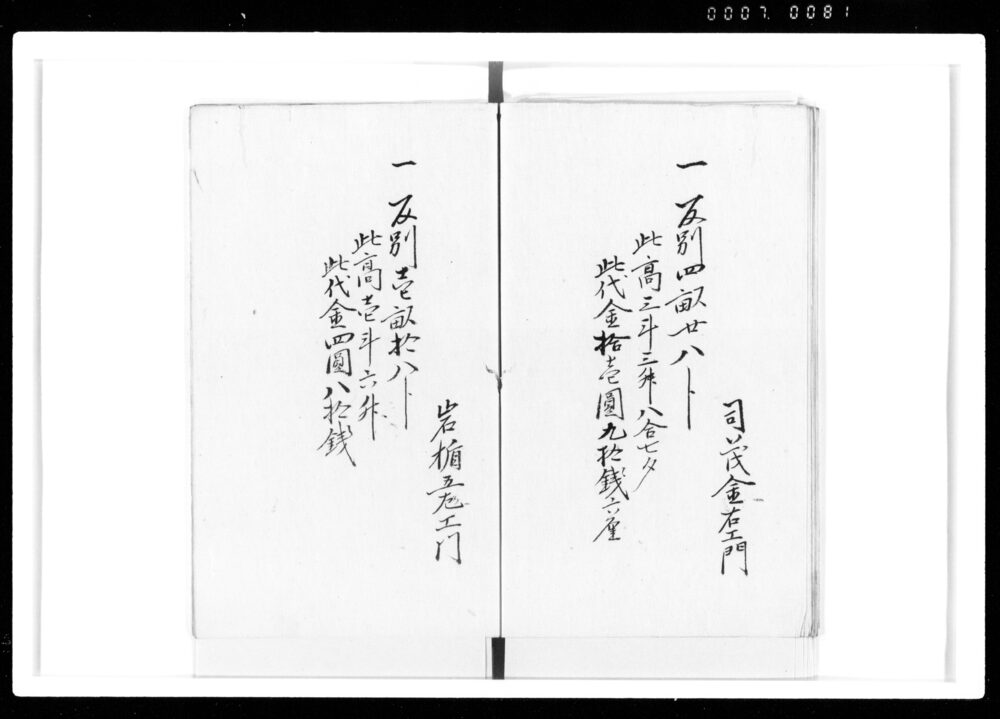 0007. 0081
一 反別四畝廿八卜
此高三斗三舛八合七夕
此代金拾壱圓九拾銭六厘
司 茂金右エ門
一 反別壱畝拾八卜
此高壱斗六舛
此代金四圓八拾銭
岩楯五左エ门